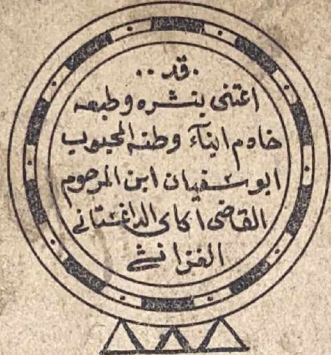 قد
اعتنى بنشره وطبعه
خادم ابناء وطنه المحبوب
ابو سفيان ابن المرحوم
القاضى اكاى الداغستانى
الغزانشى